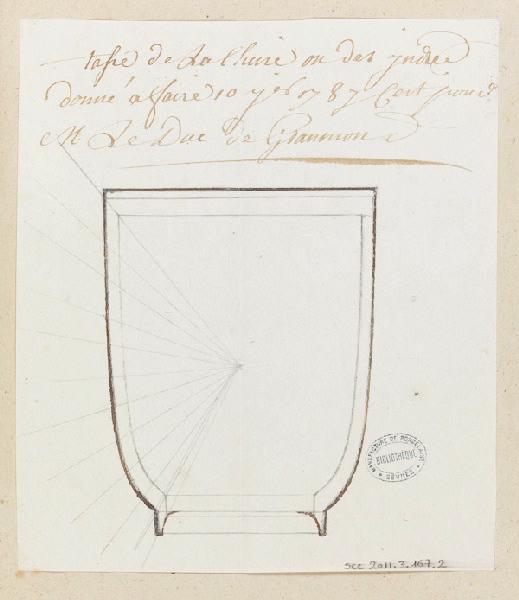 tasse de La Chine ou des jndes
donné a faire 10 1787 C'est pour
M Le Duc de Grammon
MANUFACTURE DE PORCELAINE
BIBLIOTHÈQUE
SÈVRES
SCC 2011.3.167.2